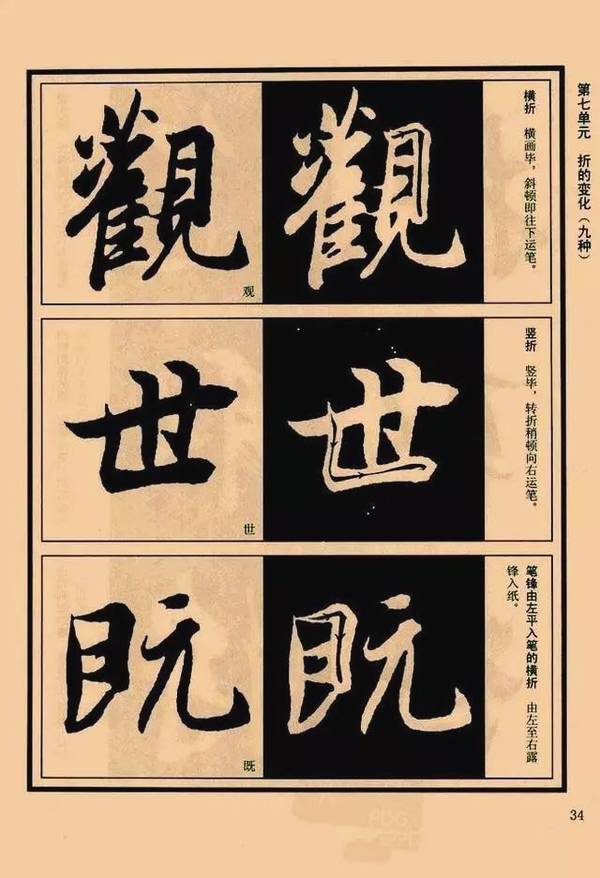 第七单元 折的变化（九种）
横折 横画毕，斜顿即往下运笔。
觀
觀
观
竖折 竖毕，转折稍顿向右运笔。
世
世
世
笔锋由左平入笔的横折 由左至右露
锋入纸。
既
既
既
34